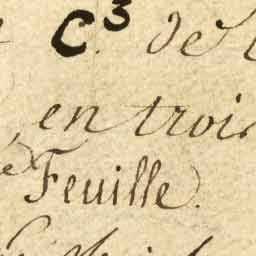 C.³ de
en trois
Feuille.